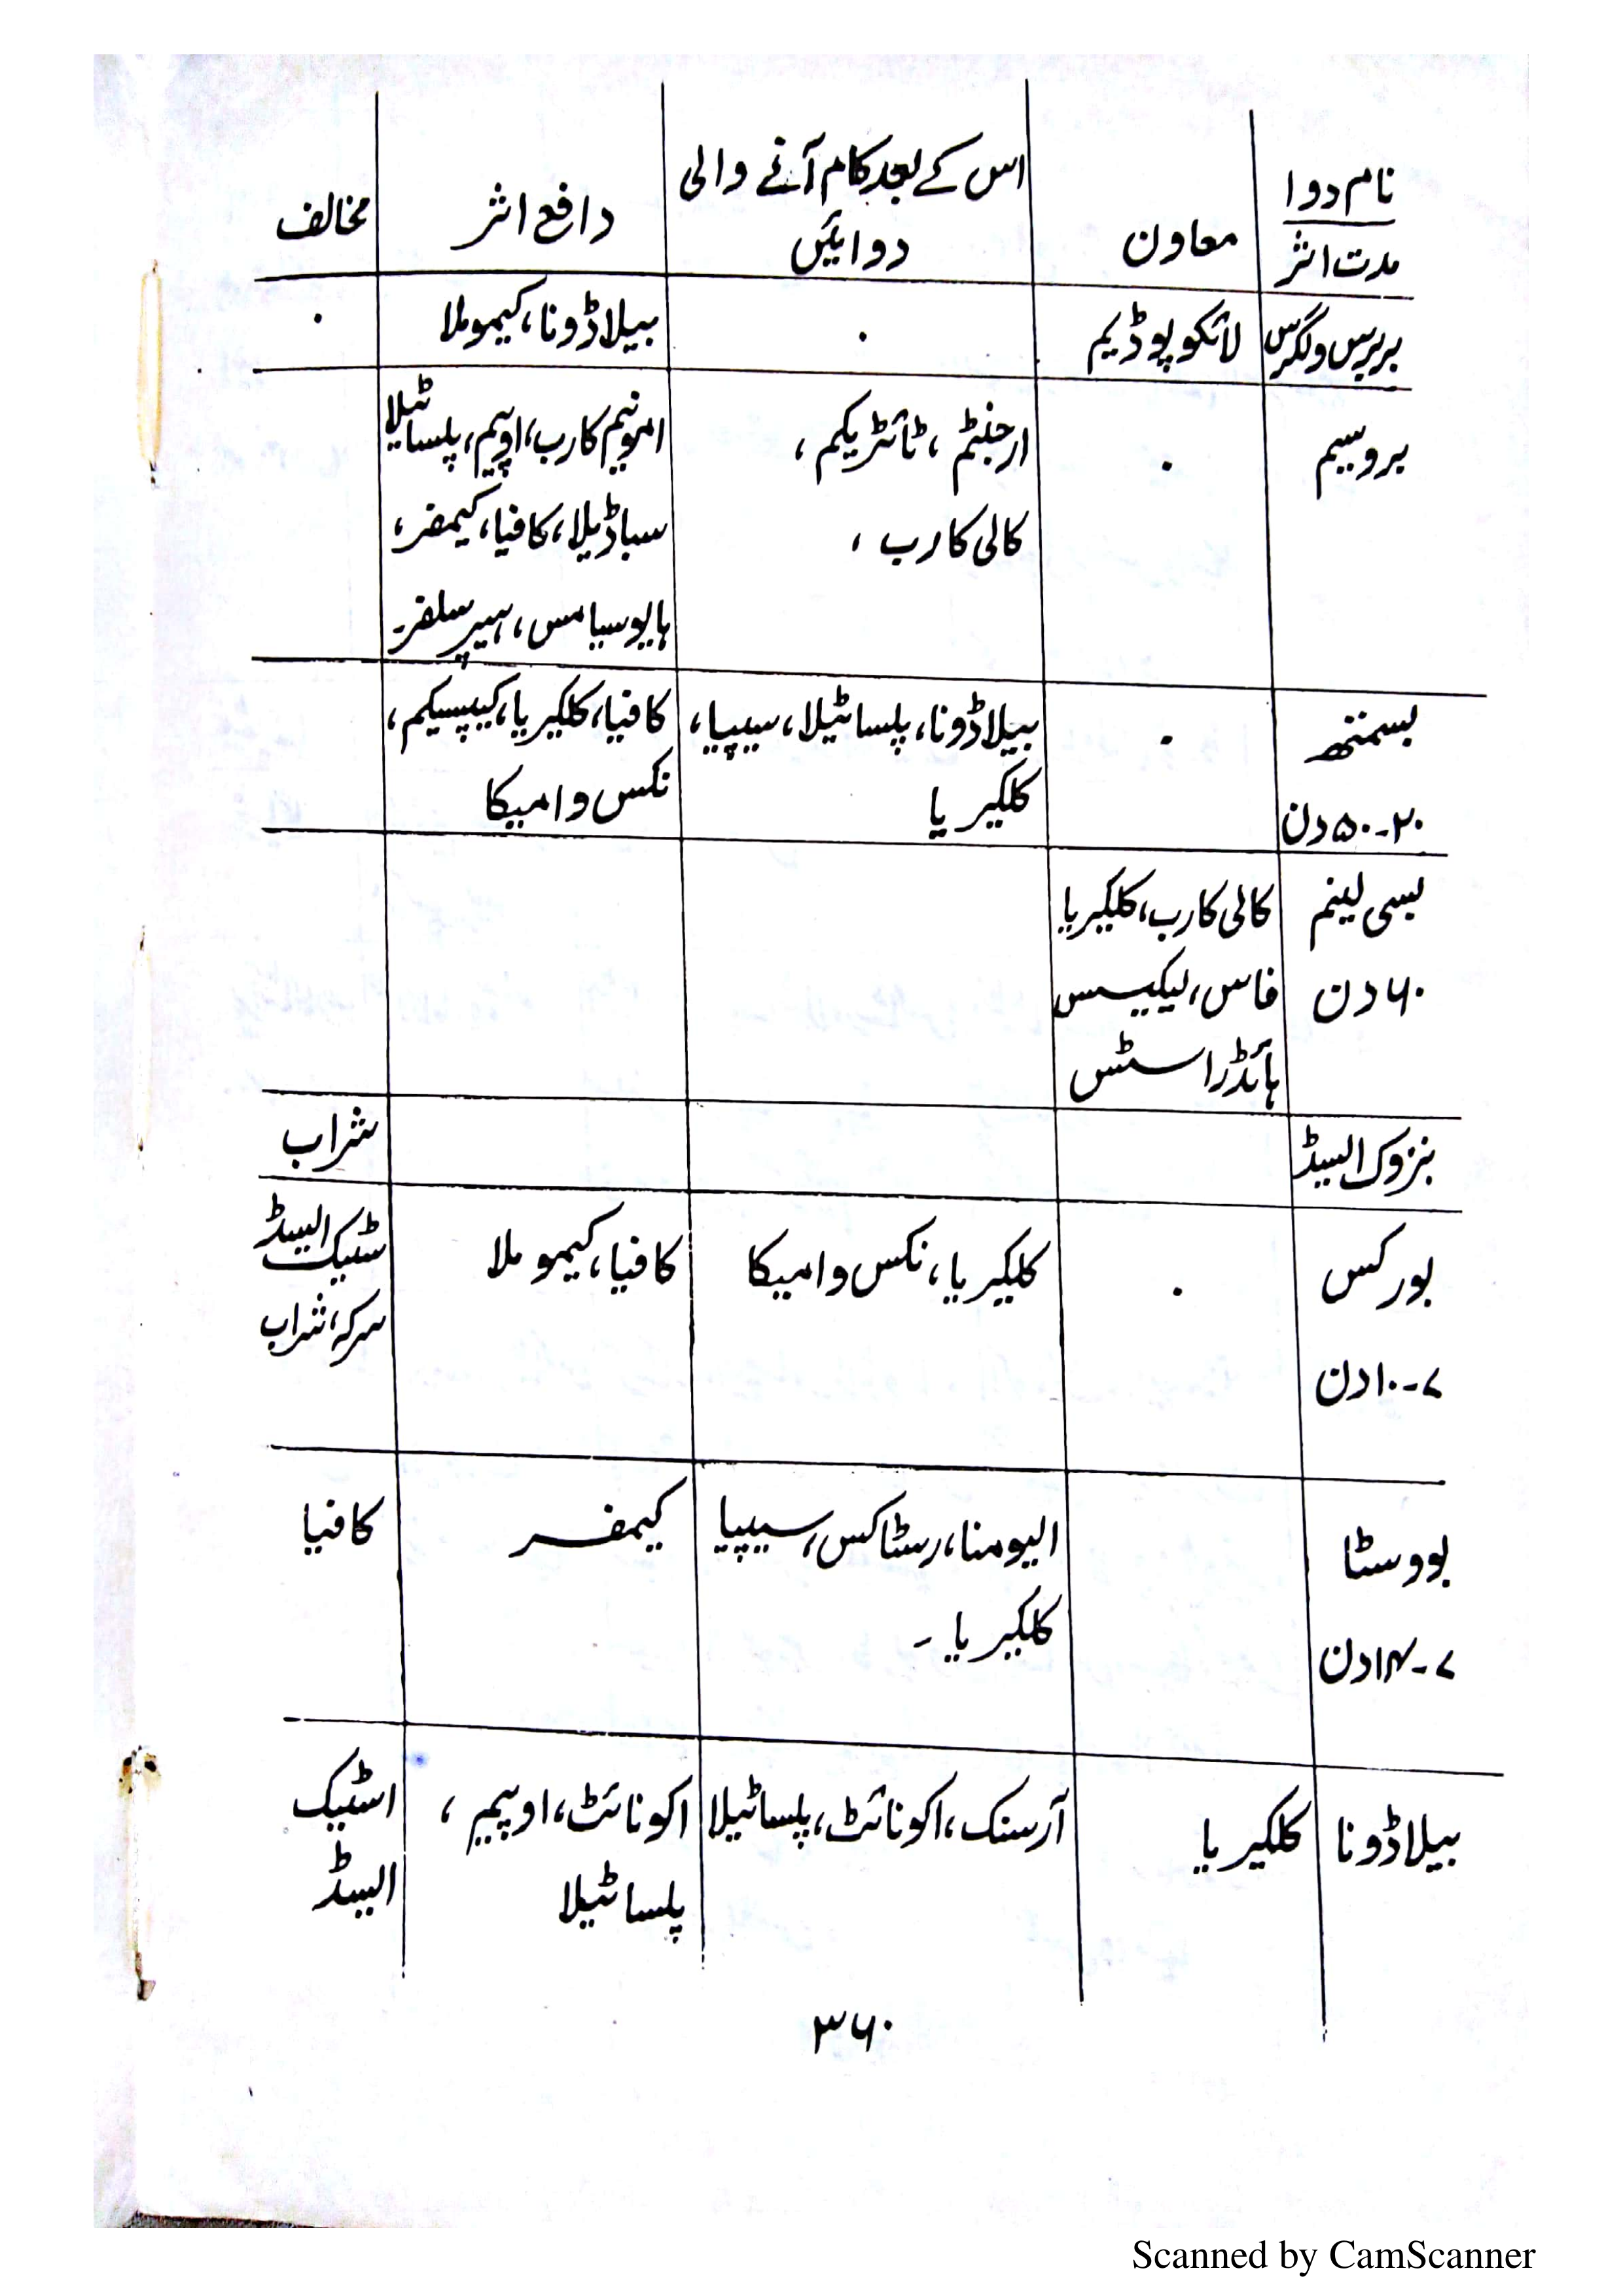 نام دوا
مدت اثر
معاون
اس کے بعد کام آنے والی
دوائیں
دافع اثر
مخالف
بربرس ولگرس
لائکوپوڈیم
۰
بیلاڈونا، کیموملا
۰
بروسیم
۰
ارجنٹم، نائٹریکم،
کالی کارب،
امونیم کارب، اوپیم، پلساٹیلا
سباڈیلا، کافیا، کیمفر،
ہایوسیامس، ہیپر سلفر۔
بسمتھ
۲۰۔۵۰ دن
۰
بیلاڈونا، پلساٹیلا، سیپیا،
کلکیریا
کافیا، کلکیریا، کیپسیکم،
نکس وامیکا
بسی لینم
۶۰ دن
کالی کارب، کلکیریا
فاس، لیکیسس
ہائڈراسٹس
بنزوک ایسڈ
شراب
بورکس
۷۔۱۰ دن
۰
کلکیریا، نکس وامیکا
کافیا، کیموملا
سٹیک ایسڈ
سرکہ، شراب
بووسٹا
۷۔۱۴ دن
الیومنا، رسٹاکس، سیپیا
کلکیریا۔
کیمفر
کافیا
بیلاڈونا
کلکیریا
آرسنک، اکونائٹ، پلساٹیلا
اکونائٹ، اوپیم،
پلساٹیلا
اسٹیک
ایسڈ
۳۶۰
Scanned by CamScanner